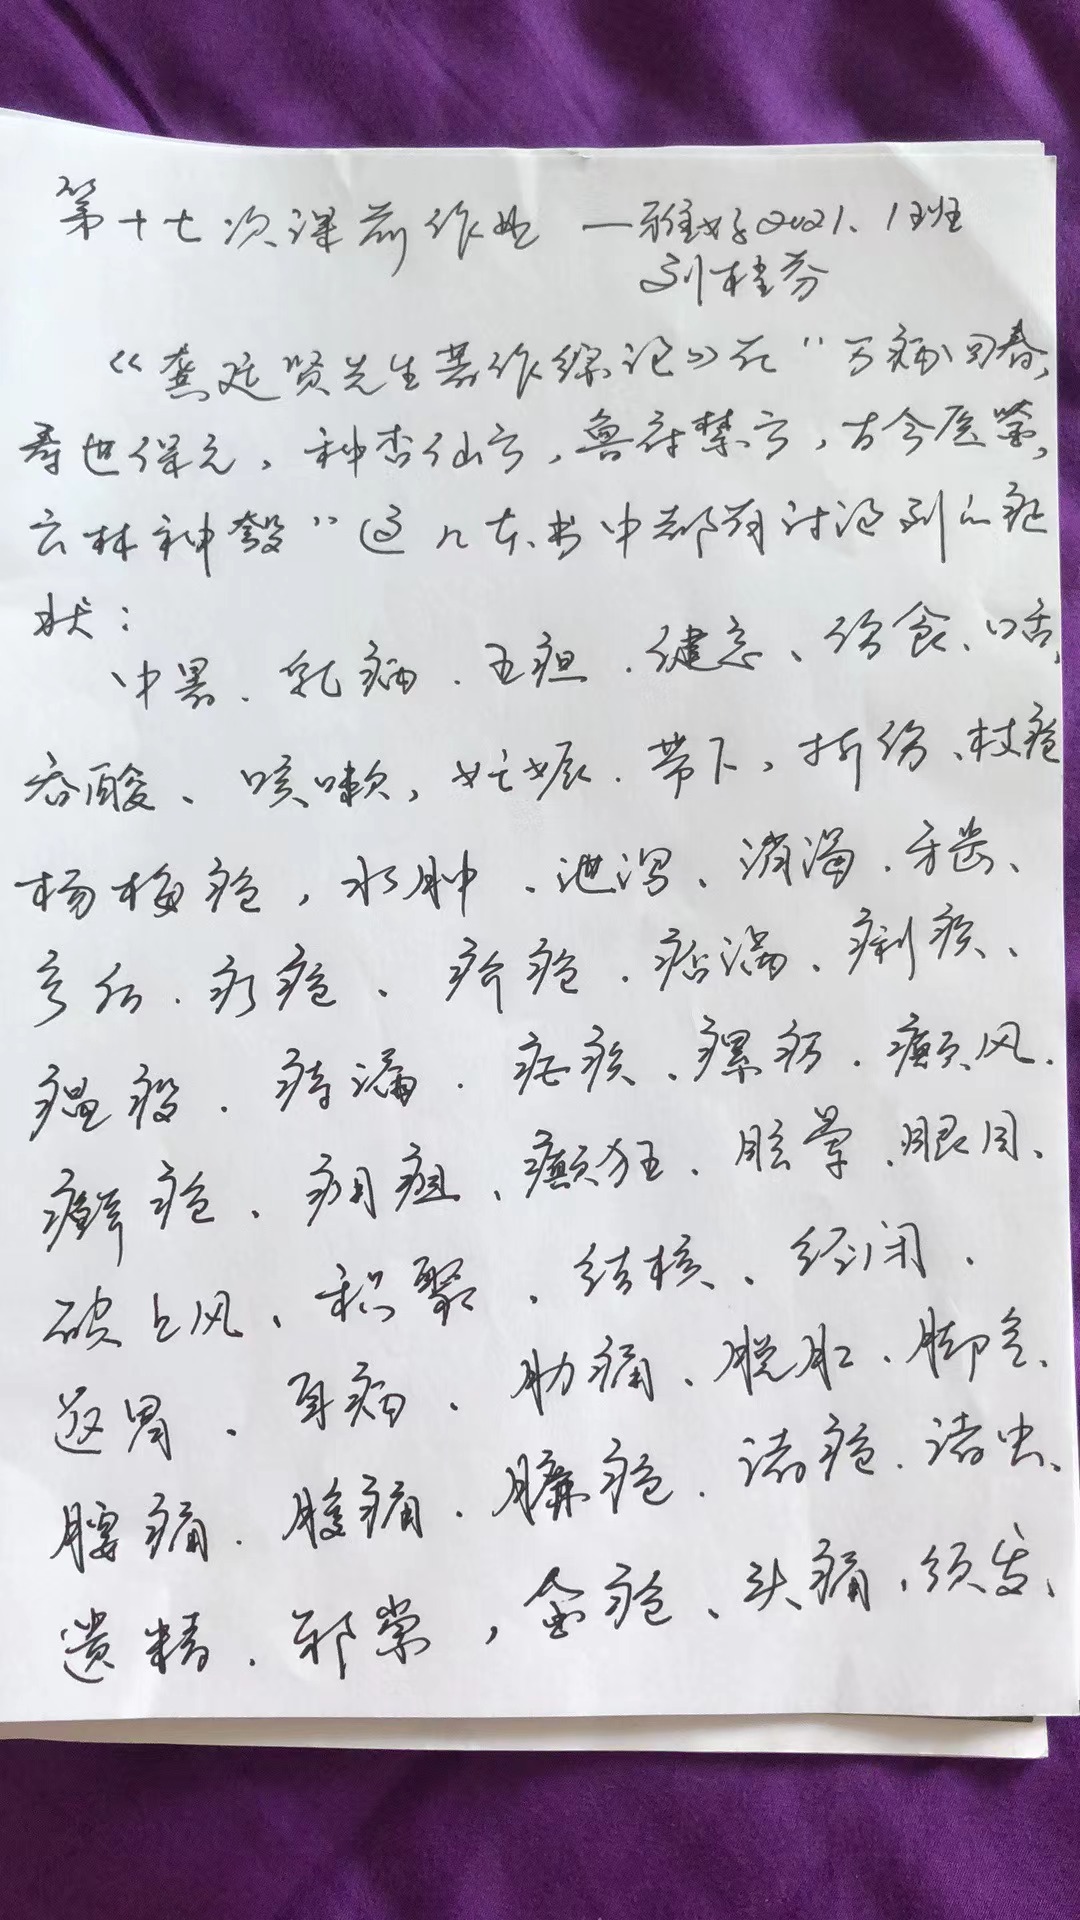 第十七次课前作业 —雅好2021.1班
刘桂芬
《龚廷贤先生著作综论》在"万病回春,
寿世保元, 种杏仙方, 鲁府禁方, 古今医鉴,
云林神彀"这几本书中都有讨论到的症
状:
中暑、乳病、五疸、健忘、伤食、
吞酸、咳嗽, 妊娠、带下, 折伤、杖疮
杨梅疮, 水肿、泄泻、消渴、牙齿、
疔疮、疥疮、痞满、痢疾、
瘟疫、痔漏、疟疾、瘰疬、癜风、
癣疮、痈疽、癫狂、眩晕、眼目、
破伤风、积聚、结核、经闭、
翻胃、耳病、胁痛、脱肛、脚气、
腰痛、腹痛、臁疮、诸疮、诸虫、
遗精、邪祟, 金疮、头痛、须发、